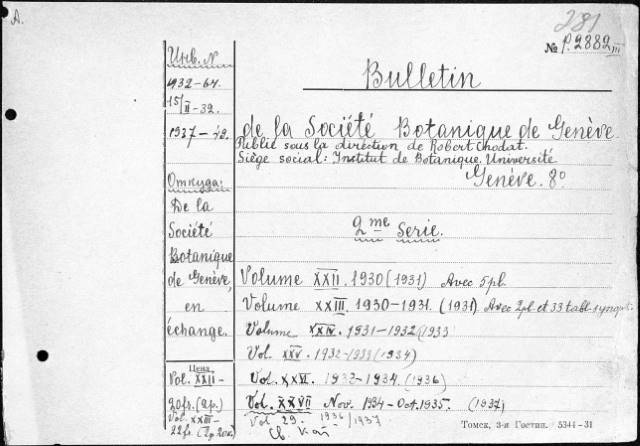 A.
281
№ P.2882 III
Инв. N
1932-64.
15/II-32.
1937-42.
Откуда:
De la
Société
Botanique
de Genève,
en
échange.
Цена
Vol. XXII-
20 fs. (др.)
Vol. XXIII-
22 fs.
Bulletin
de la Société Botanique de Genève.
Publié sous la direction de Robert Chodat.
Siège social: Institut de Botanique. Université
Genève. 8°
2me Serie.
Volume XXII. 1930 (1931) Avec 5 pl.
Volume XXIII. 1930-1931. (1931) Avec 2 pl. et 33 tabl.
Volume XXIV. 1931-1932 (1933
Vol. XXV. 1932-1933 (1934)
Vol. XXVI. 1933-1934. (1936)
Vol. XXVII Nov. 1934-Oct. 1935. (1937)
Vol 29. 1936/1937
Томск, 3-я Гостип. 5341-31